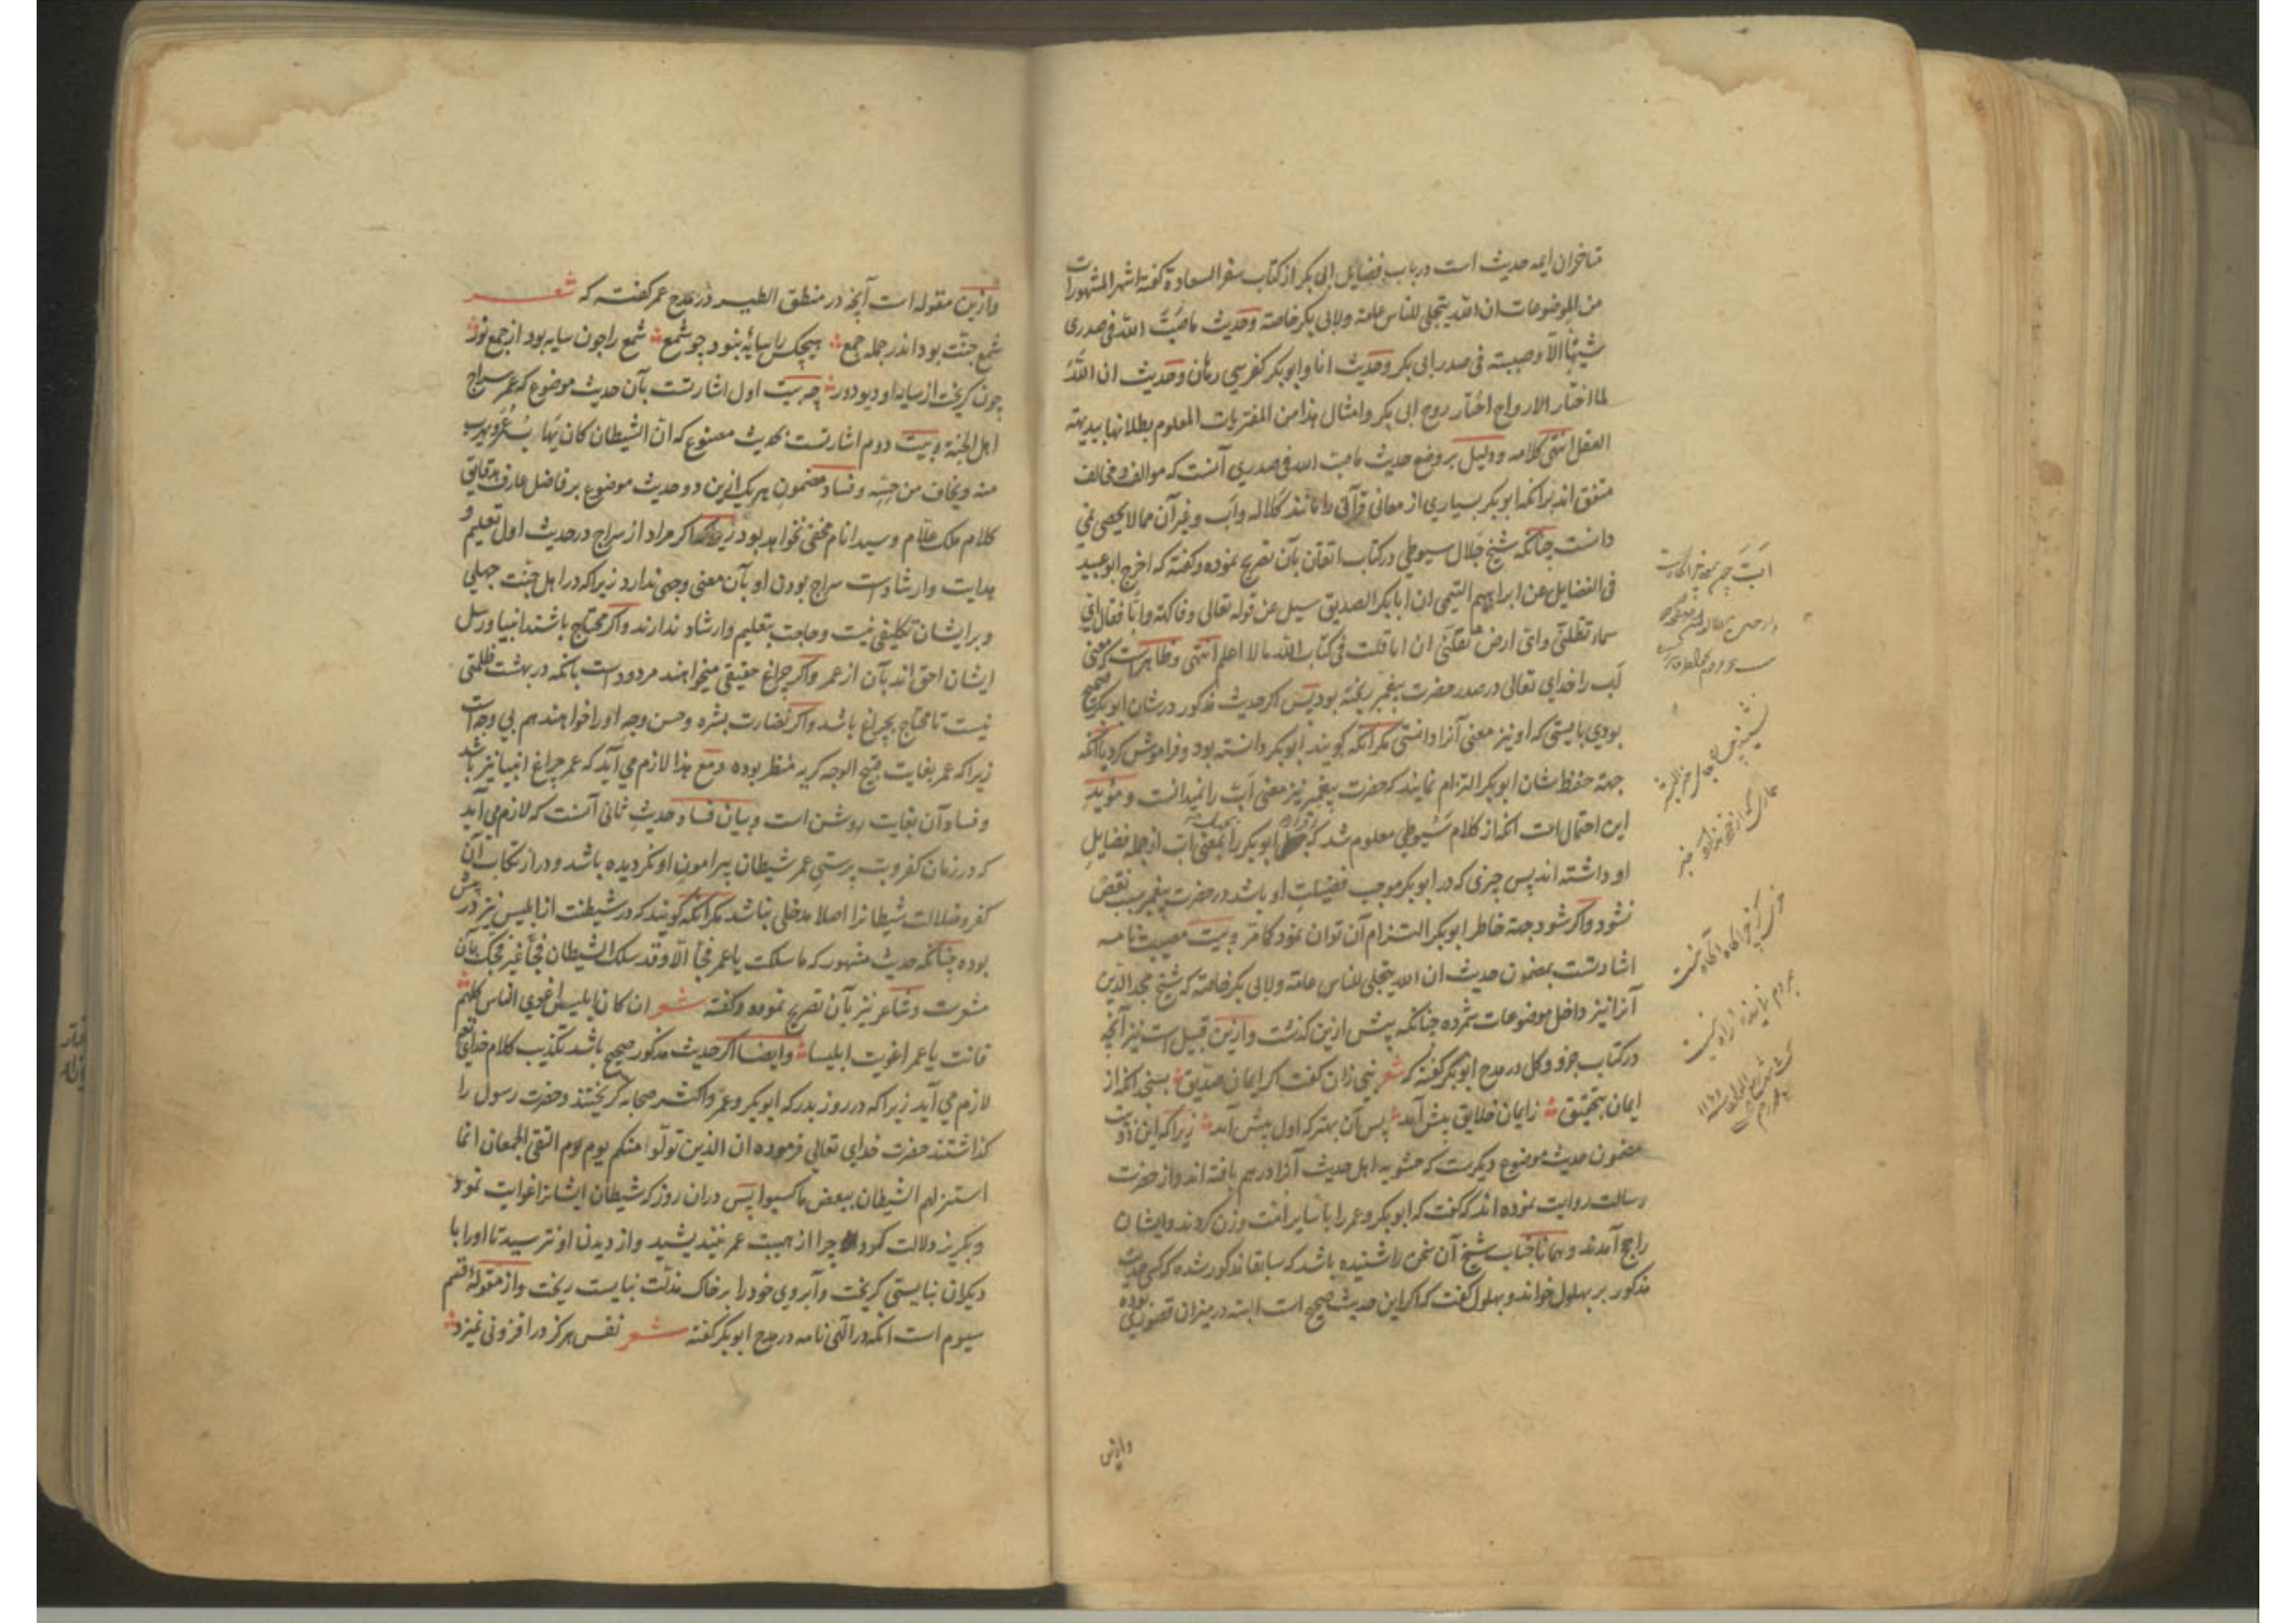 متاخران ایمه حدیث است در باب فضایل ابی بکر از کتاب سفر السعادة گفته اشهر المشهورات
من الموضوعات ان الله یتجلی للناس عامة ولابی بکر خاصة وحدیث ما صَبّ الله فی صدری
شیئاً الّا وصببته فی صدر ابی بکر وحدیث انا وابو بکر کفرسی رهان وحدیث ان اللّه
لما اختار الارواح اختار روح ابی بکر وامثال هذا من المفتریات المعلوم بطلانها ببدیهة
العقل انتهی کلامه ودلیل بر وضع حدیث ما صب الله فی صدری آنست که موالف ومخالف
متفق اند برانکه ابو بکر بسیاری از معانی قرآنی را مانند کلاله وابّ وغیر آن مما لا یحصی نمی
دانست چنانکه شیخ جلال سیوطی در کتاب اتقان بآن تصریح نموده وگفته که اخرج ابو عبید
فی الفضایل عن ابراهیم التیمی ان ابا بکر الصدیق سیل عن قوله تعالی وفاکهة وابّا فقال ایّ
سماء تظلنی وایّ ارض تقلّنی ان انا قلت فی کتاب الله ما لا اعلم انتهی وظاهرست که معنی
ابّ را خدای تعالی در صدر حضرت پیغمبر ریخته بود پس اکر حدیث مذکور در شان ابو بکر صحیح
بودی بایستی که او نیز معنی آنرا دانستی مکر آنکه کویند ابو بکر دانسته بود وفراموش کرد یا آنکه
جهة حفظ شان ابو بکر التزام نمایند که حضرت پیغمبر نیز معنی ابّ را نمیدانست ومؤید
این احتمال است انکه از کلام سیوطی معلوم شد که ابو بکر را بمعنی ابّ از جمله فضایل
او داشته اند پس چیزی که در ابو بکر موجب فضیلت او باشد در حضرت پیغمبر سبب نقص
نشود واکر شود جهة خاطر ابو بکر التزام آن توان نمود کما مر وبیت مصیبت نامه
اشارتست بمضمون حدیث ان الله یتجلی للناس عامة ولابی بکر خاصة که شیخ مجد الدین
آنرا نیز داخل موضوعات شمرده چنانکه پیش ازین کذشت وازین قبیل است نیز آنچه
در کتاب جزو وکل در مدح ابو بکر گفته که شعر نبی زان گفت اکر ایمان صدیق بسنجی انکه از
ایمان بتحقیق زایمان خلایق بیش آمد پس آن بهتر که اول پیش آمد زیرا که این
مضمون حدیث موضوع دیکرست که حشویه اهل حدیث آنرا در هم بافته اند واز حضرت
رسالت روایت نموده اند که گفت که ابو بکر وعمر را با سایر امّت وزن کردند وایشان
راجح آمدند وهمانا جناب شیخ آن سخن را شنیده باشد که سابقا مذکور شده که کسی حدیث
مذکور بر بهلول خواند وبهلول گفت که اکر این حدیث صحیح است البته در میزان قصوری بوده
وازین
وازین مقوله است آنچه در منطق الطیر در مدح عمر گفته که شعر
شمع جنّت بود اندر جمله جمع هیچکس را سایهٔ نبود چو شمع شمع را چون سایه بود از جمع نور
چون کریخت از سایه او دیو دور چه بیت اول اشارتست بآن حدیث موضوع که عمر سراج
اهل الجنة وبیت دوم اشارتست بحدیث مصنوع که انّ الشیطان کان یَهاب عُمَر ویهرب
منه ویخاف من حسّه وفساد مضمون هر یک ازین دو حدیث موضوع بر فاضل عارف بدقایق
کلام ملک علّام وسید انام مخفی نخواهد بود زیرا که اکر مراد از سراج در حدیث اول تعلیم و
هدایت وارشادست سراج بودن او بآن معنی وجهی ندارد زیرا که در اهل جنّت جهلی
وبر ایشان تکلیفی نیست وحاجت بتعلیم وارشاد ندارند واکر محتاج باشند انبیا ورسل
ایشان احق اند بآن از عمر واکر چراغ حقیقی میخواهند مردودست بانکه در بهشت ظلمتی
نیست تا محتاج بچراغ باشد واکر نضارت بشره وحسن وجه او را خواهند هم بی وجه است
زیرا که عمر بغایت قبیح الوجه کریه منظر بوده ومع هذا لازم می آید که عمر چراغ انبیا نیز باشد
وفساد آن بغایت روشن است وبیان فساد حدیثِ ثانی آنست که لازم می آید
که در زمان کفر وبت پرستیِ عمر شیطان پیرامونِ او نکردیده باشد ودر ارتکاب آن
کفر وضلالت شیطانرا اصلا مدخلی نباشد مکر آنکه کویند که در شیطنت از ابلیس نیز در پیش
بوده چنانکه حدیث مشهور که ما سلکت یا عمر فجّاً الّا وقد سلک الشیطان فجّاً غیر فجّک بآن
مشعرست وشاعر نیز بآن تصریح نموده وگفته شعر ان کان ابلیس اغوی الناس کلهم
فانت یا عمر اغویت ابلیسا وایضا اکر حدیث مذکور صحیح باشد تکذیب کلام خدای تعالی
لازم می آید زیرا که در روز بدر که ابو بکر وعمر واکثر صحابه کریختند وحضرت رسول را
کذاشتند حضرت خدای تعالی فرموده ان الذین تولّوا منکم یوم التقی الجمعان انما
استزلهم الشیطان ببعض ما کسبوا پس دران روز که شیطان ایشانرا غوایت نمود
وبکریز دلالت کرد چرا از هیبت عمر نیندیشید واز دیدن او نترسید تا او را با
دیکران نبایستی کریخت وآبروی خود را بر خاک مذلّت نبایست ریخت واز مقولهٔ قسم
سیوم است انکه در الهی نامه در مدح ابو بکر گفته شعر نفس هرکز در افزونی نمیزد